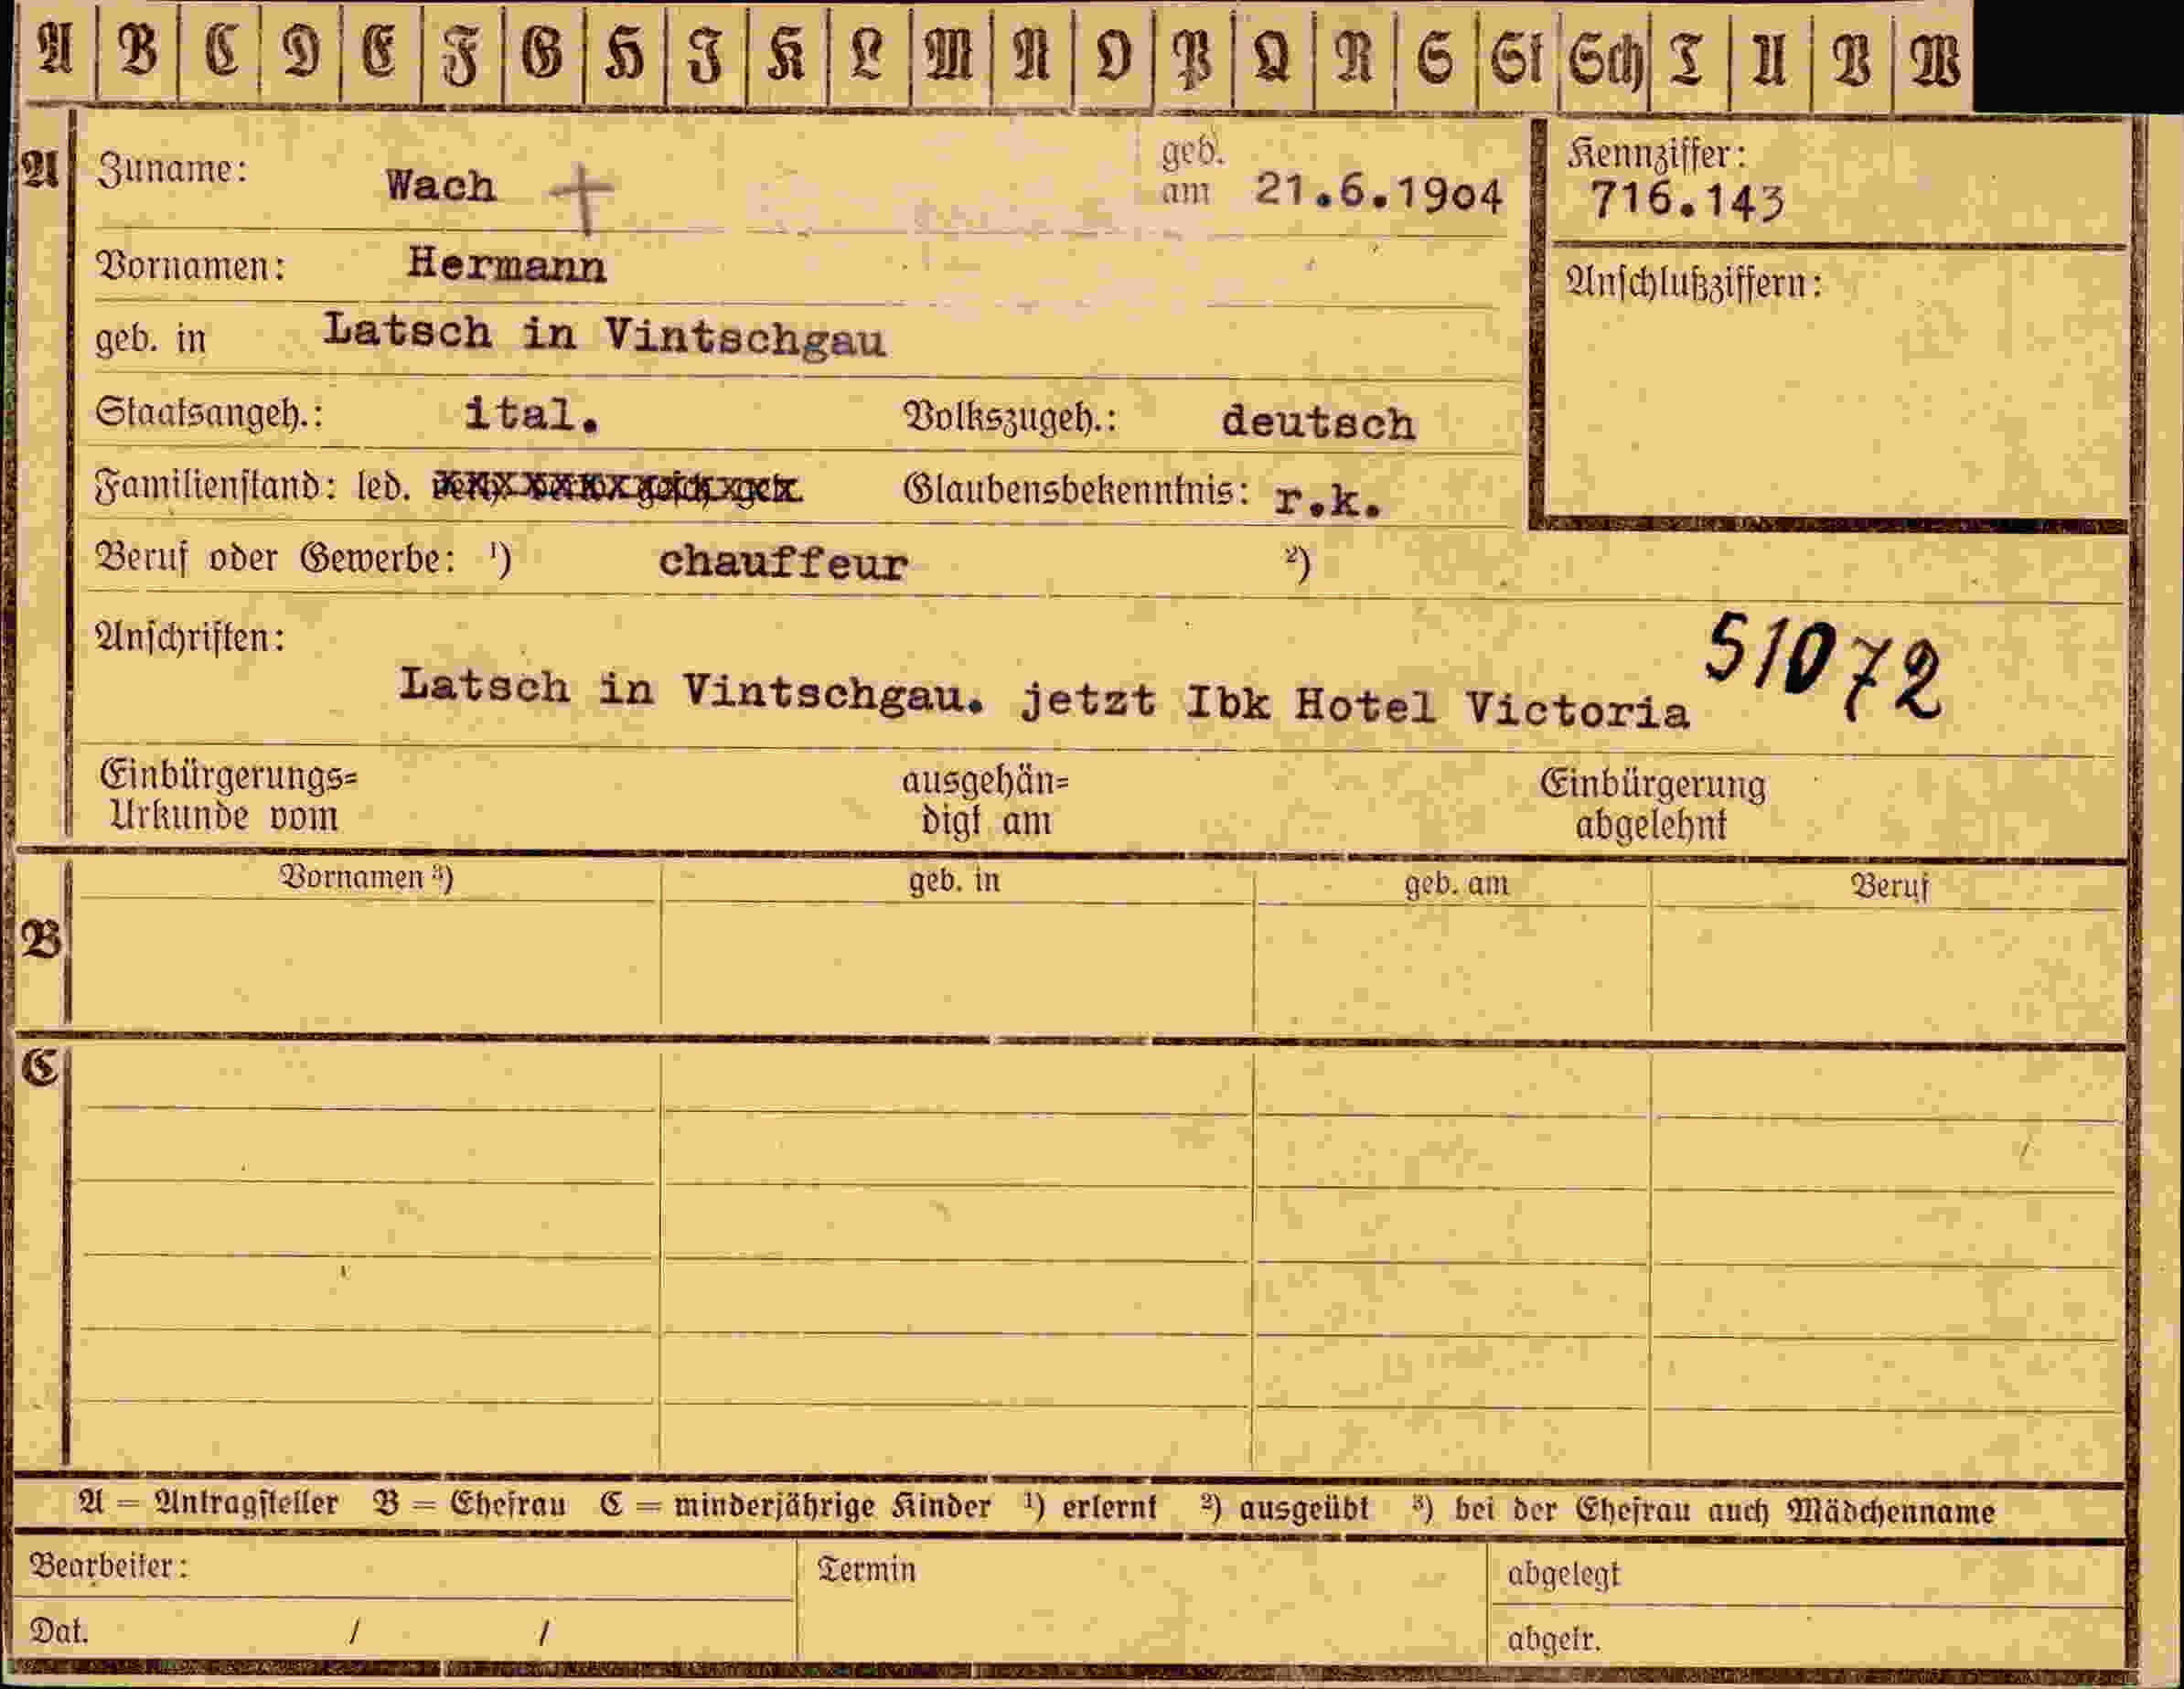 A B C D E F G H I K L M N O P Q R S St Sch T U V W
A Zuname: Wach + geb. am 21.6.1904 Kennziffer: 716.143
Vornamen: Hermann Anschlußziffern:
geb. in Latsch in Vintschgau
Staatsangeh.: ital. Volkszugeh.: deutsch
Familienstand: led. verh. verw. gesch. getr. Glaubensbekenntnis: r.k.
Beruf oder Gewerbe: ¹) chauffeur ²)
Anschriften: 51072
Latsch in Vintschgau. jetzt Ibk Hotel Victoria
Einbürgerungs= ausgehän= Einbürgerung
Urkunde vom digt am abgelehnt
Vornamen ³) geb. in geb. am Beruf
B
C
A = Antragsteller B = Ehefrau C = minderjährige Kinder ¹) erlernt ²) ausgeübt ³) bei der Ehefrau auch Mädchenname
Bearbeiter: Termin abgelegt
Dat. / / abgetr.